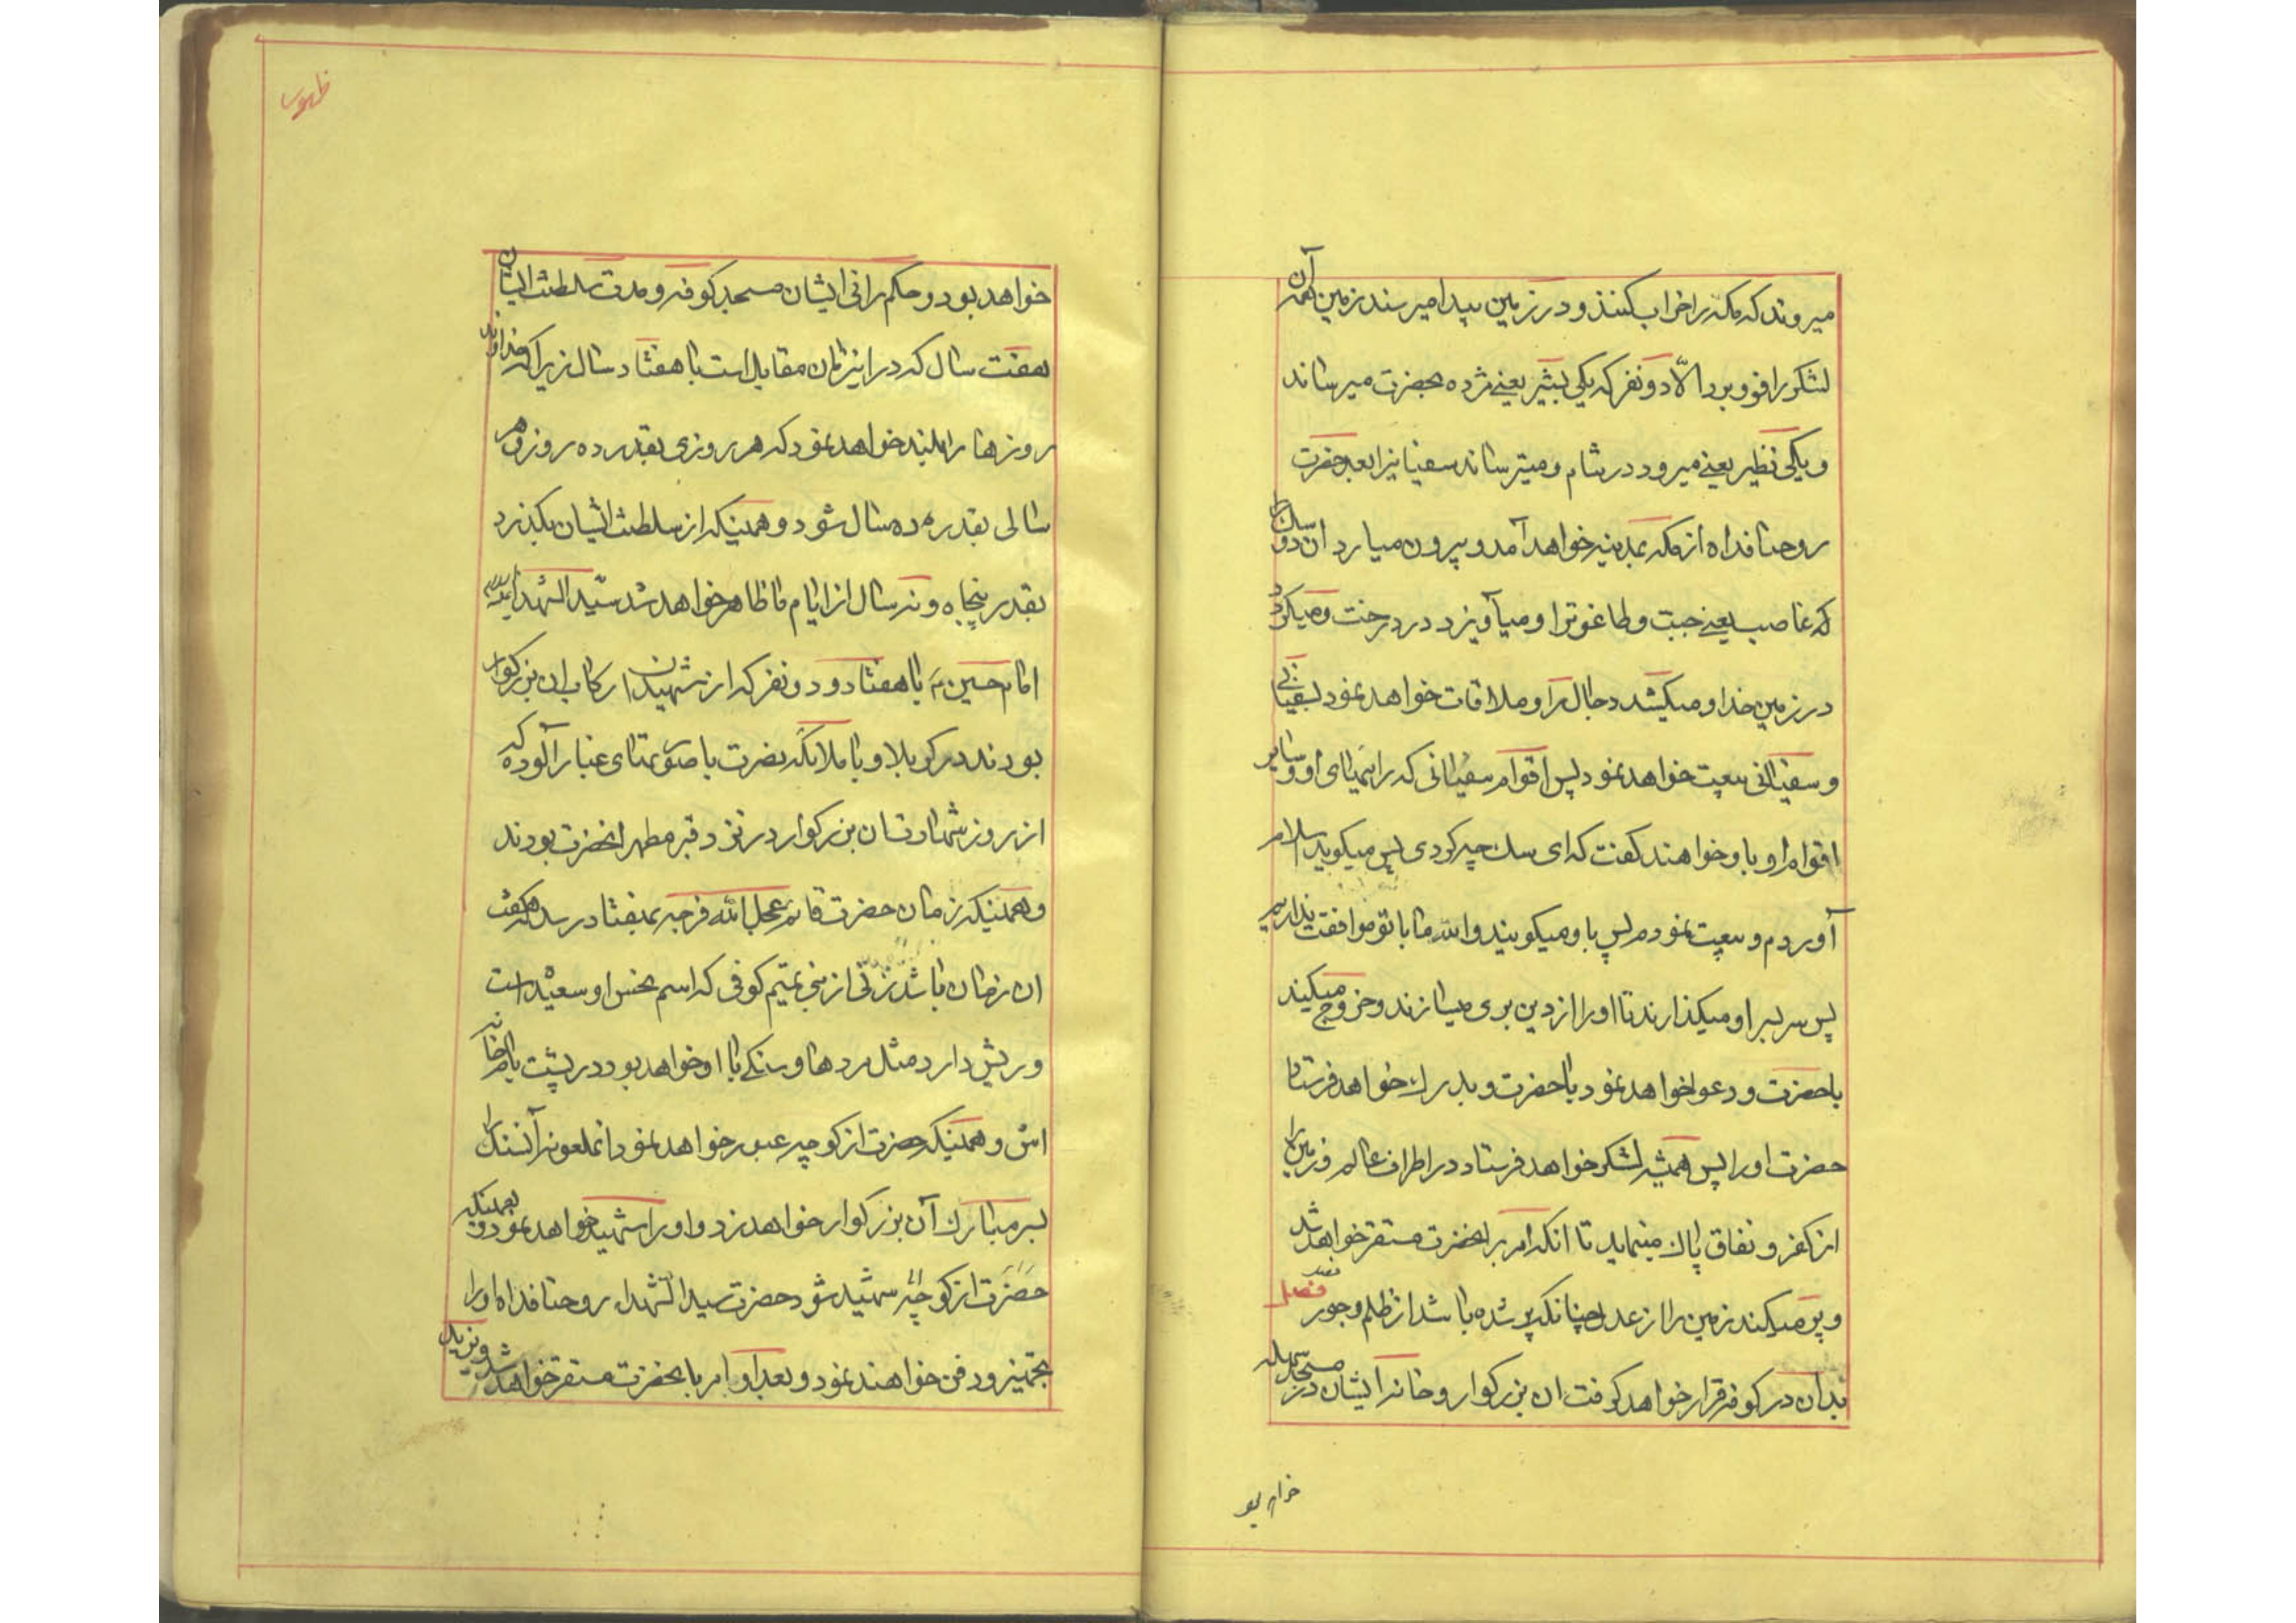 میروند که مکه را خراب کنند و در زمین بیدا میرسند زمین همه آن
لشکر را فرو برد الّا دو نفر که یکی بشیر یعنی مژده بحضرت میرساند
و یکی نظیر یعنی میرود در شام و میترساند سفیانیرا بعد حضرت
روحنا فداه از مکه بمدینه خواهد آمد و بیرون میارد ان دو سک را
که غاصب یعنی جبت و طاغوترا و میآویزد در درخت و میگردد
در زمین خدا و میکشد دجال را و ملاقات خواهد نمود بسفیانی
و سفیانی بیعت خواهد نمود پس اقوام سفیانی که راهنمای او و سایر
اقوام او باو خواهند گفت که ای سک چه کردی پس میکوید سلام
آوردم و بیعت نمودم پس باو میکویند والله ما با تو موافقت نداریم
پس سر بسر او میکذارند تا او را از دین بری میسازند و خروج میکند
باحضرت و دعوا خواهد نمود باحضرت و بدرک خواهد فرستاد
حضرت او را پس همیشه لشکر خواهد فرستاد در اطراف عالم و زمین را
از کفر و نفاق پاک مینماید تا انکه امر بر انحضرت مستقر خواهد شد
و پر میکند زمین را از عدل چنانکه پر شده باشد از ظلم و جور فصل
بدان در کوفه قرار خواهد کرفت ان بزرکوار و خانه ایشان در مسجد سهله
خواهد بو
ظهور
خواهد بود و حکم رانی ایشان مسجد کوفه و مدت سلطنت ایشان
هفت سال که در اینزمان مقابل است با هفتاد سال زیرا که خداوند
روزها را بلند خواهد نمود که هر روزی بقدر ده روز و هر
سالی بقدر ده سال شود و همینکه از سلطنت ایشان بکذرد
بقدر پنجاه و نه سال از ایام ما ظاهر خواهد شد سیّد الشهدا
امام حسین با هفتاد و دو نفر که از شهیدان رکاب ان بزرکوار
بودند در کربلا و با ملائکه نصرت با صورتهای غبار آلوده که
از روز شهادت ان بزرکوار در نزد قبر مطهر انحضرت بودند
و همینکه زمان حضرت قائم عجل الله فرجه بهفتاد رسد که هفت
ان زمان باشد زنی از بنی تمیم کوفی که اسم نحس او سعیده است
و ریش دارد مثل مردها و سنکی با او خواهد بود در پشت بام خانه
اش و همینکه حضرت از کوچه عبور خواهد نمود انملعونه آنسنک را
بسر مبارک آن بزرکوار خواهد زد و او را شهید خواهد نمود و بهمینکه
حضرت از کوچه شهید شود حضرت سید الشهداء روحنا فداه او را
تجهیز و دفن خواهند نمود و بعد از او امر با بحضرت مستقر خواهد شد و یزید